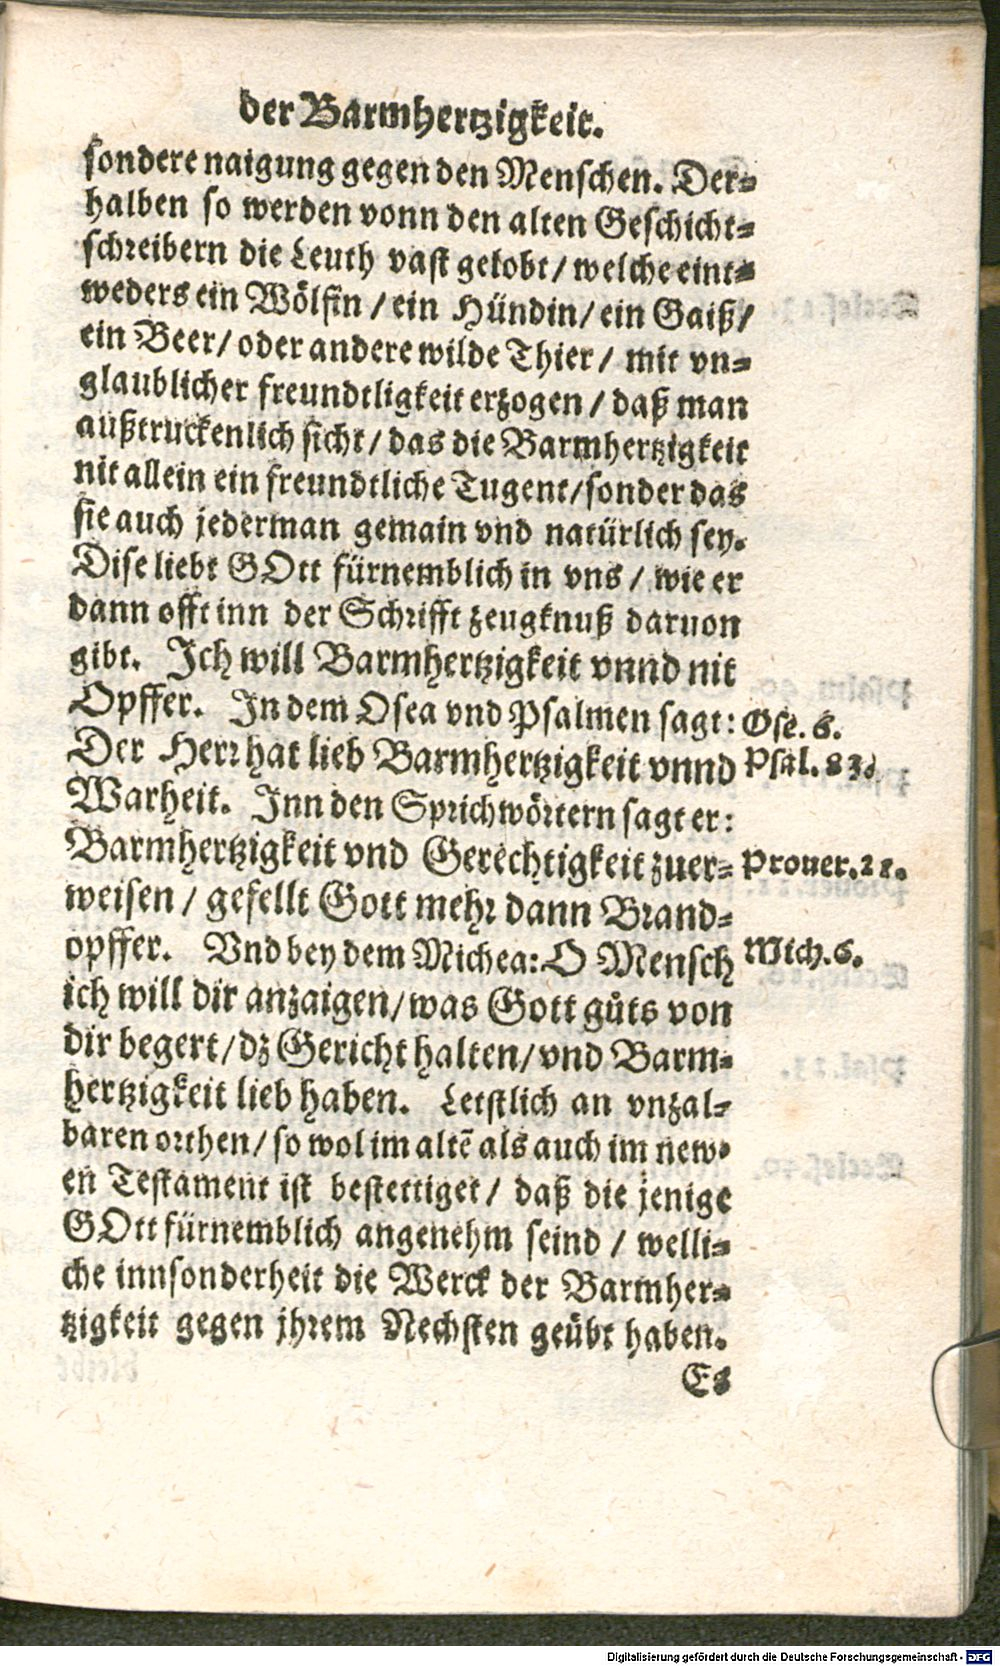 der Barmhertzigkeit.
sondere naigung gegen den Menschen. Der-
halben so werden vonn den alten Geschicht-
schreibern die Leuth vast gelobt / welche eint-
weders ein Wölfin / ein Hündin / ein Gaiß /
ein Beer / oder andere wilde Thier / mit vn-
glaublicher freundtligkeit erzogen / daß man
außtruckenlich sicht / das die Barmhertzigkeit
nit allein ein freundtliche Tugent / sonder das
sie auch jederman gemain vnd natürlich sey.
Dise liebt GOtt fürnemblich in vns / wie er
dann offt inn der Schrifft zeugknuß daruon
gibt. Ich will Barmhertzigkeit vnnd nit
Opffer. In dem Osea vnd Psalmen sagt: Ose. 6.
Der Herr hat lieb Barmhertzigkeit vnnd Psal. 83.
Warheit. Inn den Sprichwörtern sagt er:
Barmhertzigkeit vnd Gerechtigkeit zuer- Prouer. 21.
weisen / gefellt Gott mehr dann Brand-
opffer. Vnd bey dem Michea: O Mensch Mich. 6.
ich will dir anzaigen / was Gott gůts von
dir begert / dz Gericht halten / vnd Barm-
hertzigkeit lieb haben. Letstlich an vnzal-
baren orthen / so wol im altẽ als auch im new-
en Testament ist bestettiget / daß die jenige
GOtt fürnemblich angenehm seind / welli-
che innsonderheit die Werck der Barmher-
tzigkeit gegen jhrem Nechsten geübt haben.
Es
Digitalisierung gefördert durch die Deutsche Forschungsgemeinschaft - DFG